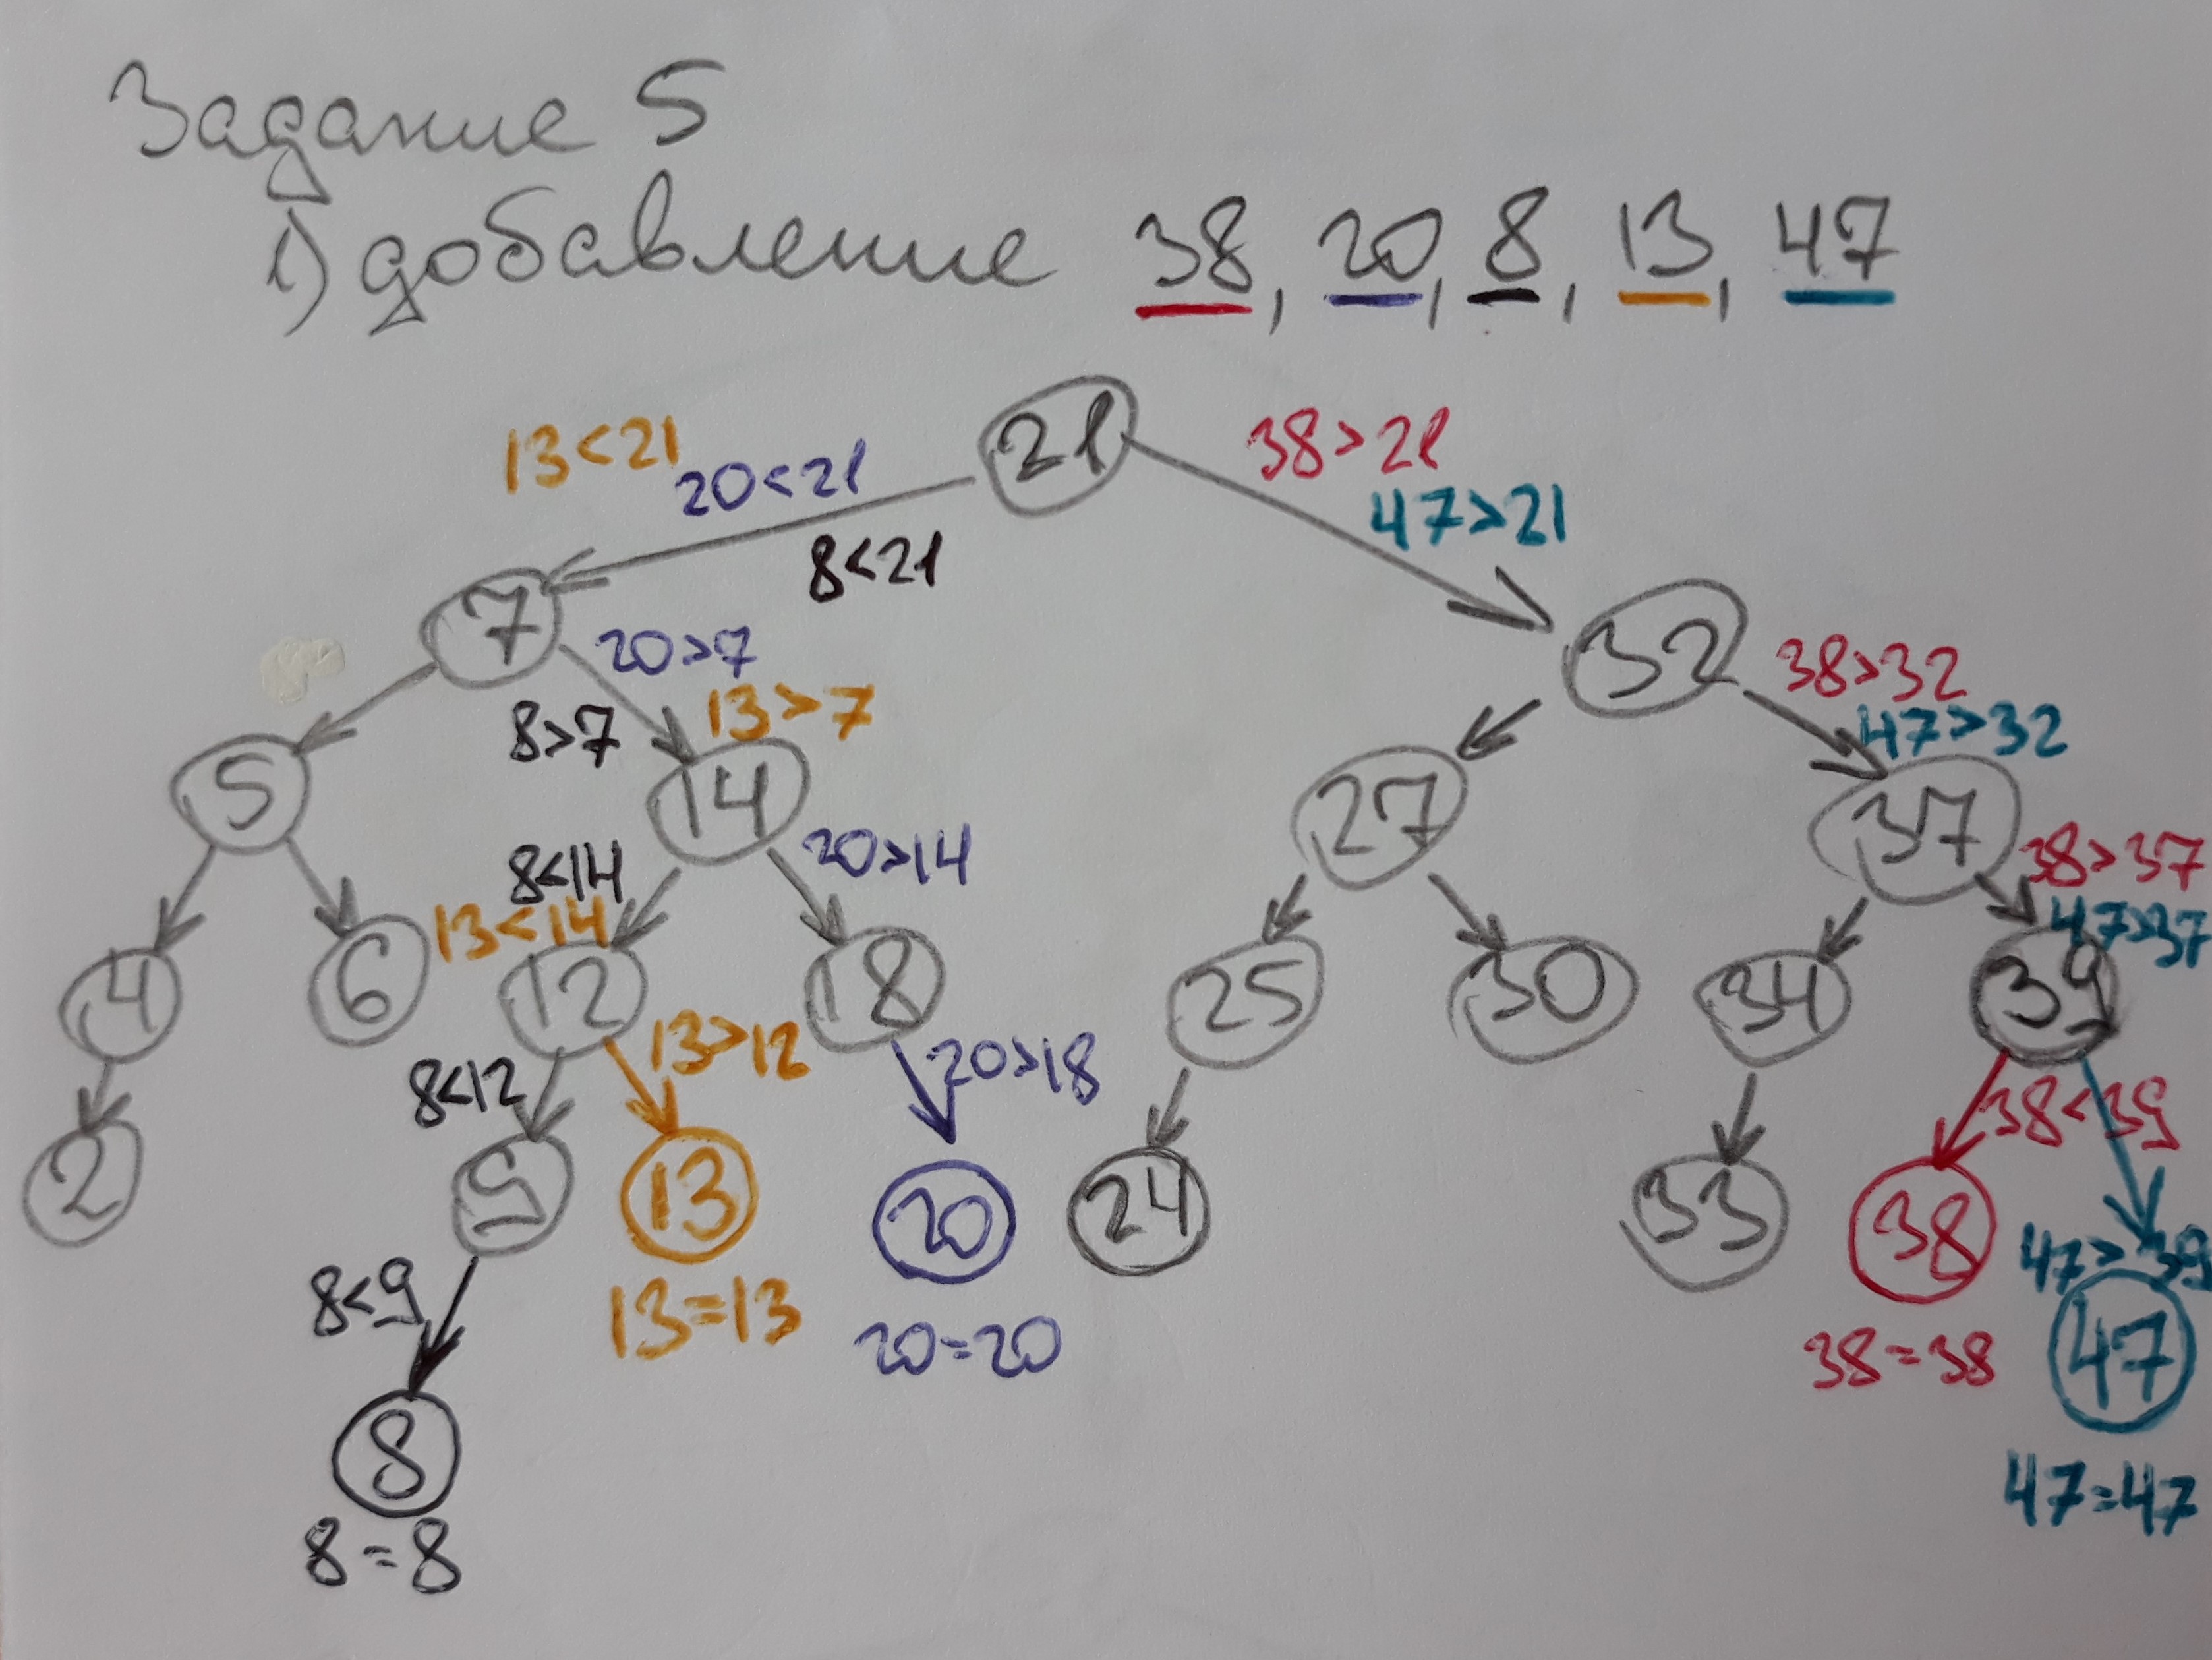 Задание 5
1) добавление 38, 20, 8, 13, 47
21
13<21
20<21
8<21
38>21
47>21
7
32
20>7
13>7
8>7
38>32
47>32
5
14
27
37
8<14
13<14
20>14
38>37
47>37
4
6
12
18
25
30
34
39
8<12
13>12
20>18
38<39
47>39
2
9
13
20
24
33
38
47
8<9
13=13
20=20
38=38
47=47
8
8=8